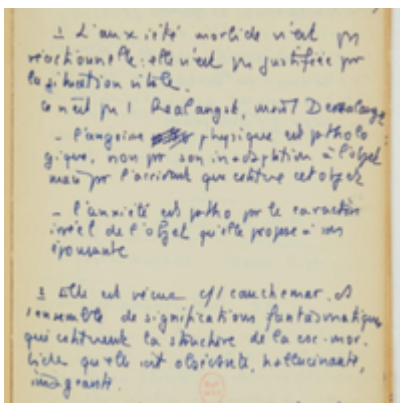 2 L'anxiété morbide n'est ps
réactionnelle : elle n'est ps justifiée pr
la situation vitale.
ce n'est ps 1 Realangst,
- l'angoisse physique est patholo
gique, non pr son inadaptation à l'objet
mais pr que cet objet
- l'anxiété est patho pr le caractère
irréel de l'objet qu'elle propose à son
épouvante
3 Elle est vécue c/ cauchemar.
l'ensemble de significations fantasmatiques
qui la structure de la csc. mor.
bide qu'elle soit obsédante, hallucinante,
imageante.